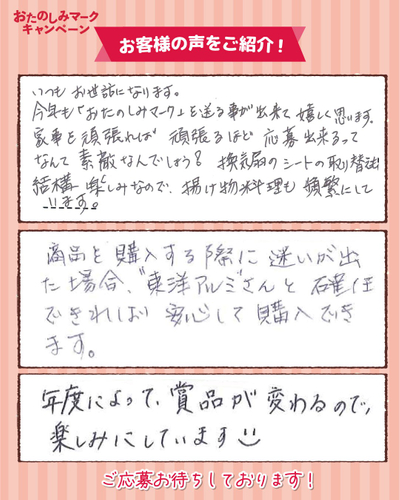 おたのしみマーク
キャンペーン
お客様の声をご紹介！
いつもお世話になります。
今年も「おたのしみマーク」を送る事が出来て嬉しく思います。
家事を頑張れば 頑張るほど 応募出来るって
なんて 素敵なんでしょう？ 換気扇のシートの取り替えも
結構 楽しみなので、揚げ物料理も 頻繁にして
います。
商品を購入する際に迷いが出
た場合、"東洋アルミさんと確信
できれば 安心して購入でき
ます。
年度によって、賞品が変わるので、
楽しみにしています
ご応募お待ちしております！